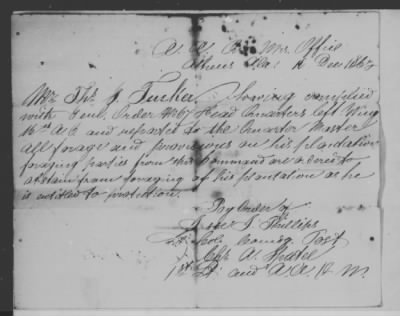 A. A. Q. Mrs Office
Athens Ala. Dec 1863
Mr. Thos J. Tucker, having complied
with Genl. Order No 67 Head Quarters left Wing
16th A. C and reported to the Quarter Master
all forage and provisions on his plantation
foraging parties from this Command are ordered to
abstain from foraging of his plantation as he
is entitled to protection.
By Order of
J. Phillips
Lt. Col. Comdg Post
A.
1st Lt and A. A. Q. M.